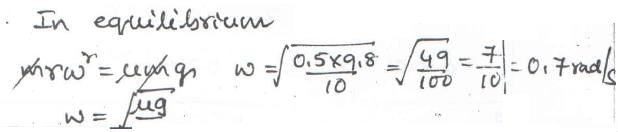 . In equilibrium
mrω² = μmg ω = √(0.5×9.8/10) = √(49/100) = 7/10 = 0.7 rad/s
ω = √μg